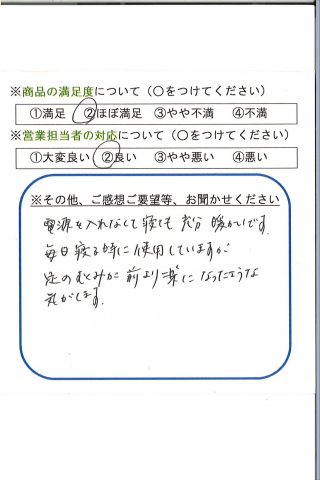 ※商品の満足度について（○をつけてください）
①満足 ②ほぼ満足 ③やや不満 ④不満
※営業担当者の対応について（○をつけてください）
①大変良い ②良い ③やや悪い ④悪い
※その他、ご感想ご要望等、お聞かせください
電源を入れなくて寝ても充分暖かいです。
毎日寝る時に使用していますが
足のむくみが前より楽になったような
気がします。